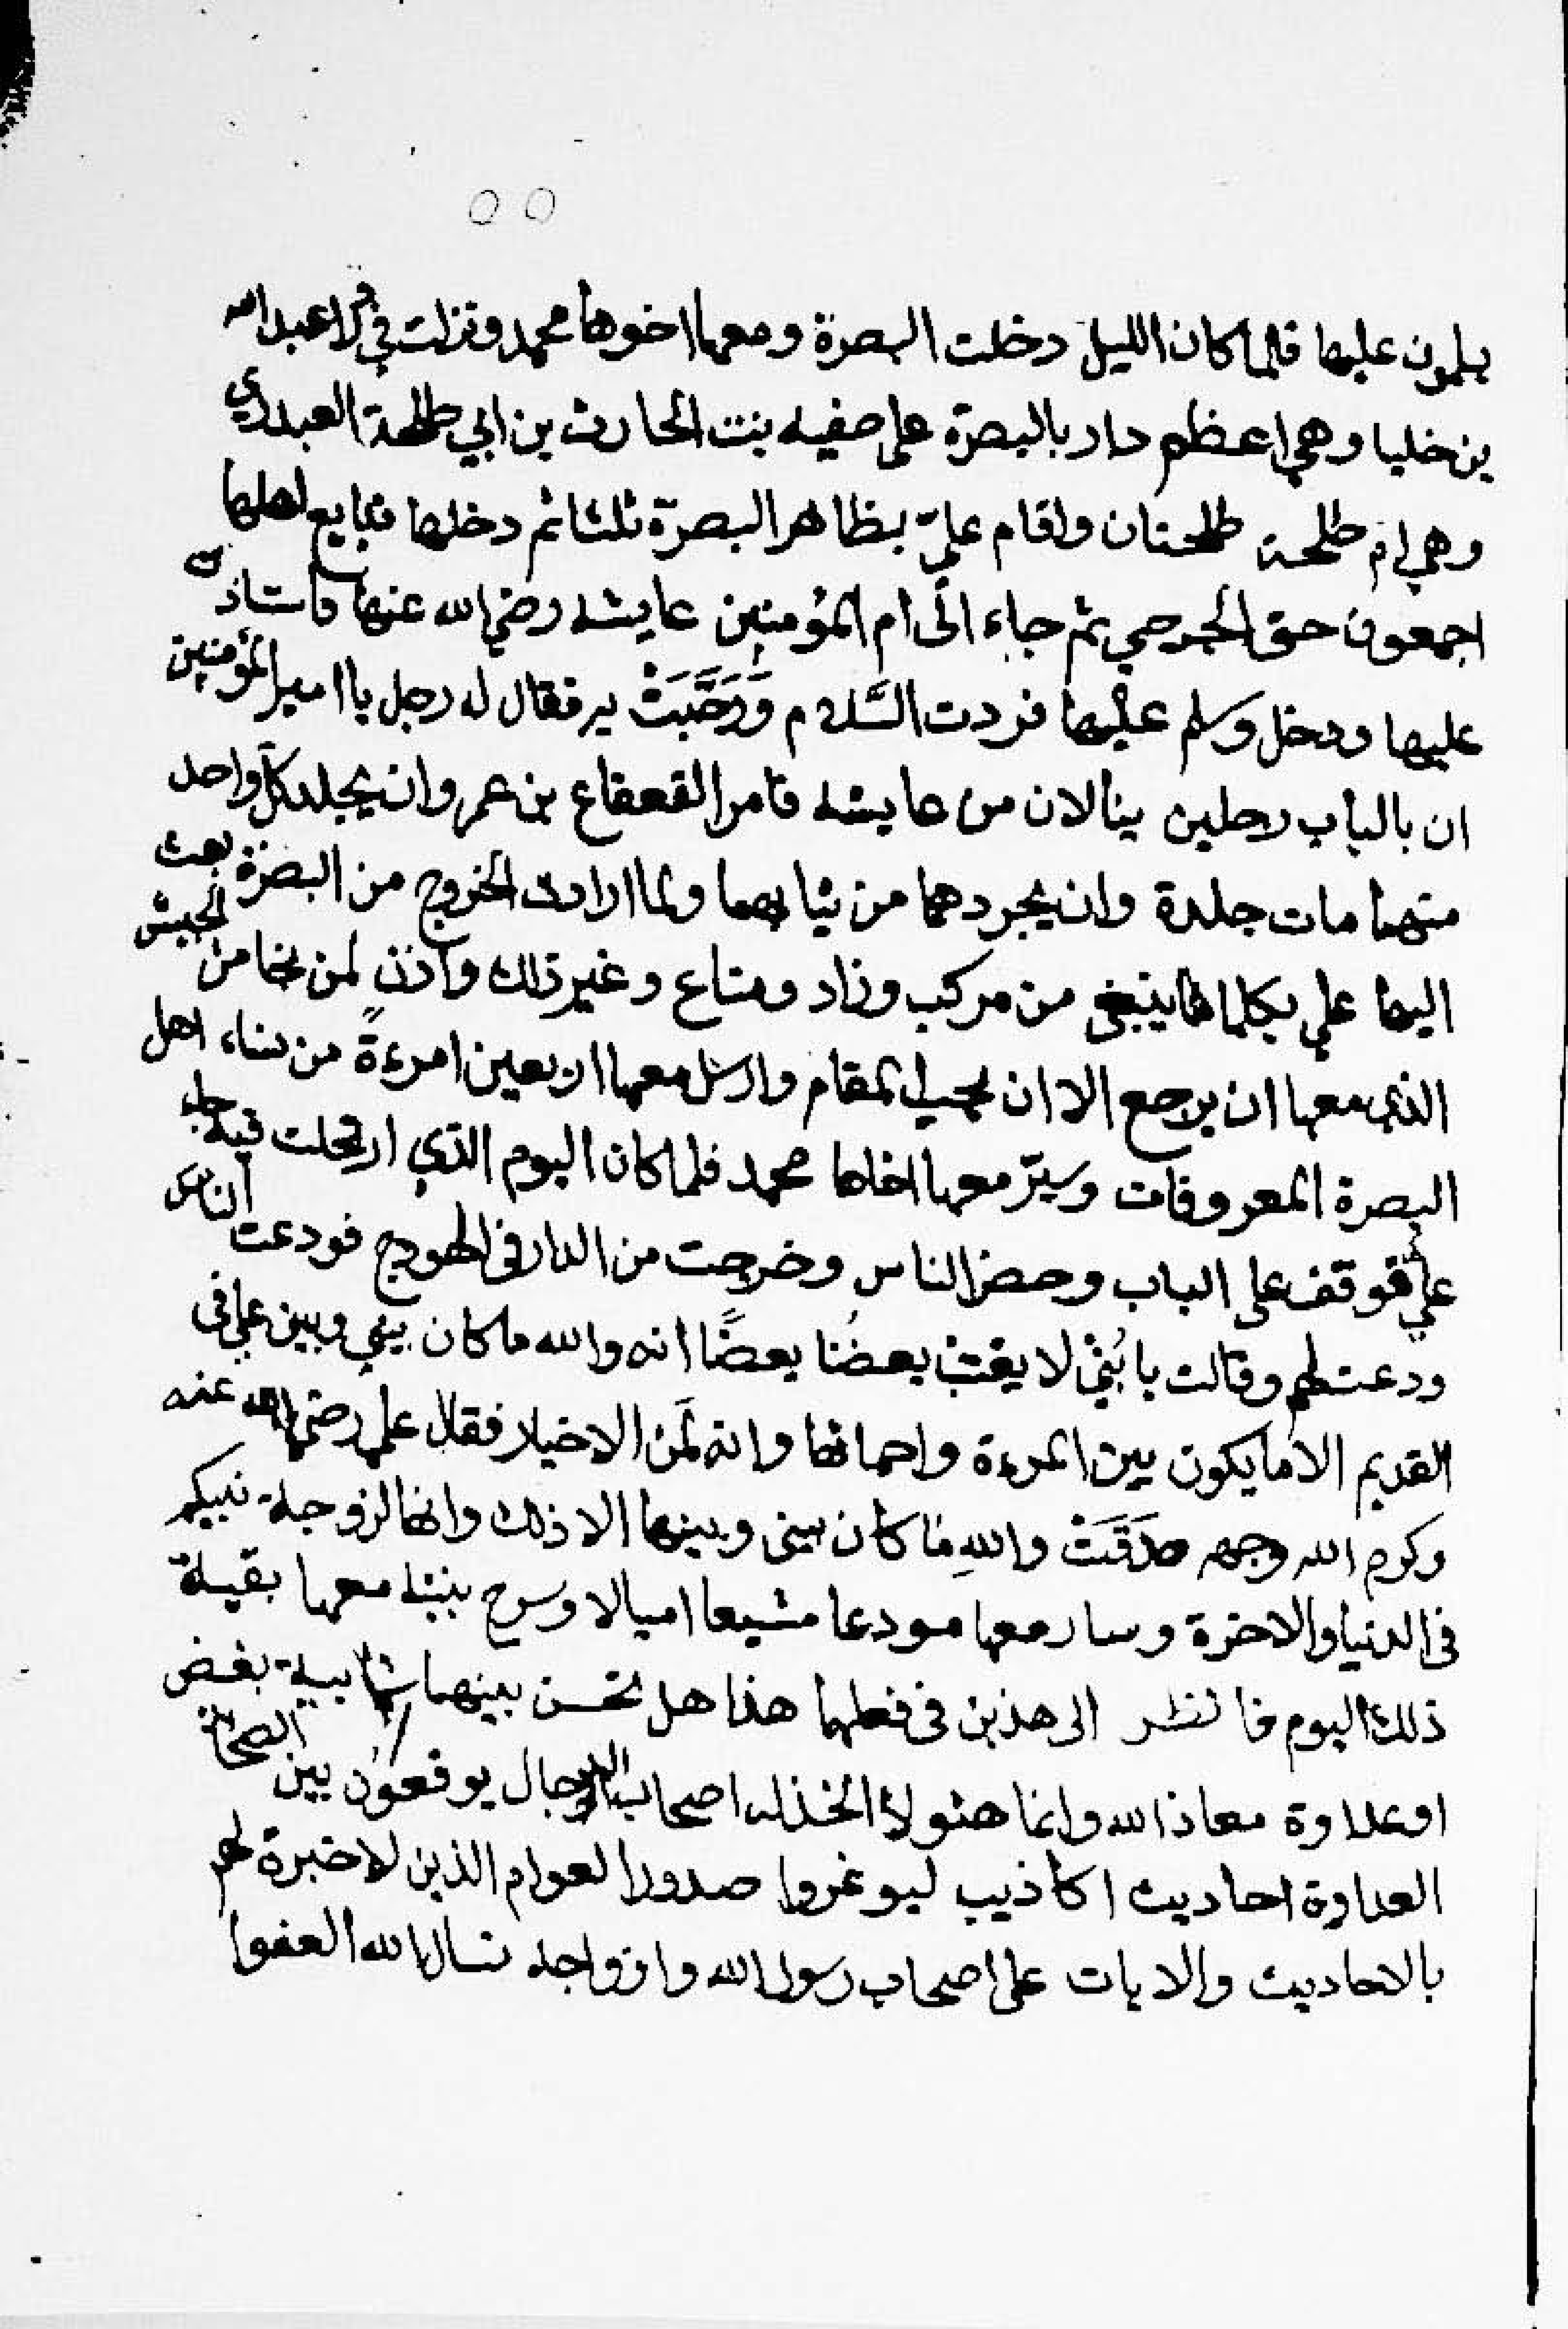 ٥ ٥
يلمون عليها فلما كان الليل دخلت البصرة ومعها اخوها محمد ونزلت في دار عبد الله
بن خليا وهي اعظم دار بالبصرة على صفيه بنت الحارث بن ابي طلحة العبدري
وهي ام طلحة طلحتان واقام عليّ بظاهر البصرة ثلثا ثم دخلها فبايع اهلها
اجمعون حتى الجرحي ثم جاء الى ام المؤمنين عايشه رضي الله عنها فاستاذن
عليها ودخل وسلم عليها فردت السَّلام وَرَحَّبَتْ به فقال له رجل يا امير المؤمنين
ان بالباب رجلين ينالان من عايشه فامر القعقاع بن عمرو ان يجلد كل واحد
منهما مات جلدة وان يجردهما من ثيابهما ولما ارادت الخروج من البصرة بعث
اليها علي بكلما ينبغى من مركب وزاد ومتاع وغير ذلك واذن لمن نجا من الجيش
الذى معها ان يرجع الا ان يحب المقام وارسل معها اربعين امرءةً من نساء اهل
البصرة المعروفات وسيّر معها اخاها محمد فلما كان اليوم الذي ارتحلت فيه جاء
علي فوقف على الباب وحضر الناس وخرجت من الدار في الهودج فودعت الناس
ودعت لهم وقالت يا بُنيّ لا يغتب بعضُنا بعضًا انه والله ما كان بيني وبين علي في
القديم الا ما يكون بين المرءة واحمائها وانه لَمن الاخيار فقال علي رضي الله عنه
وكرم الله وجهه صدَقَتْ واللهِ ما كان بيني وبينها الا ذلك وانها لزوجة نبيكم
في الدنيا والاخرة وسار معها مودعا مشيعا اميالا وسرح بنيه معها بقية
ذلك اليوم فانظر الى هذين في فعلهما هذا هل تحسن بينهما شايبة بغض
او عداوة معاذ الله وانما هئولاء الخذله اصحاب الدجال يوقعون بين الصحابة
العداوة احاديث اكاذيب ليوغروا صدور العوام الذين لا خبرة لهم
بالاحاديث والايات على اصحاب رسول الله وازواجه نسال الله العفوا